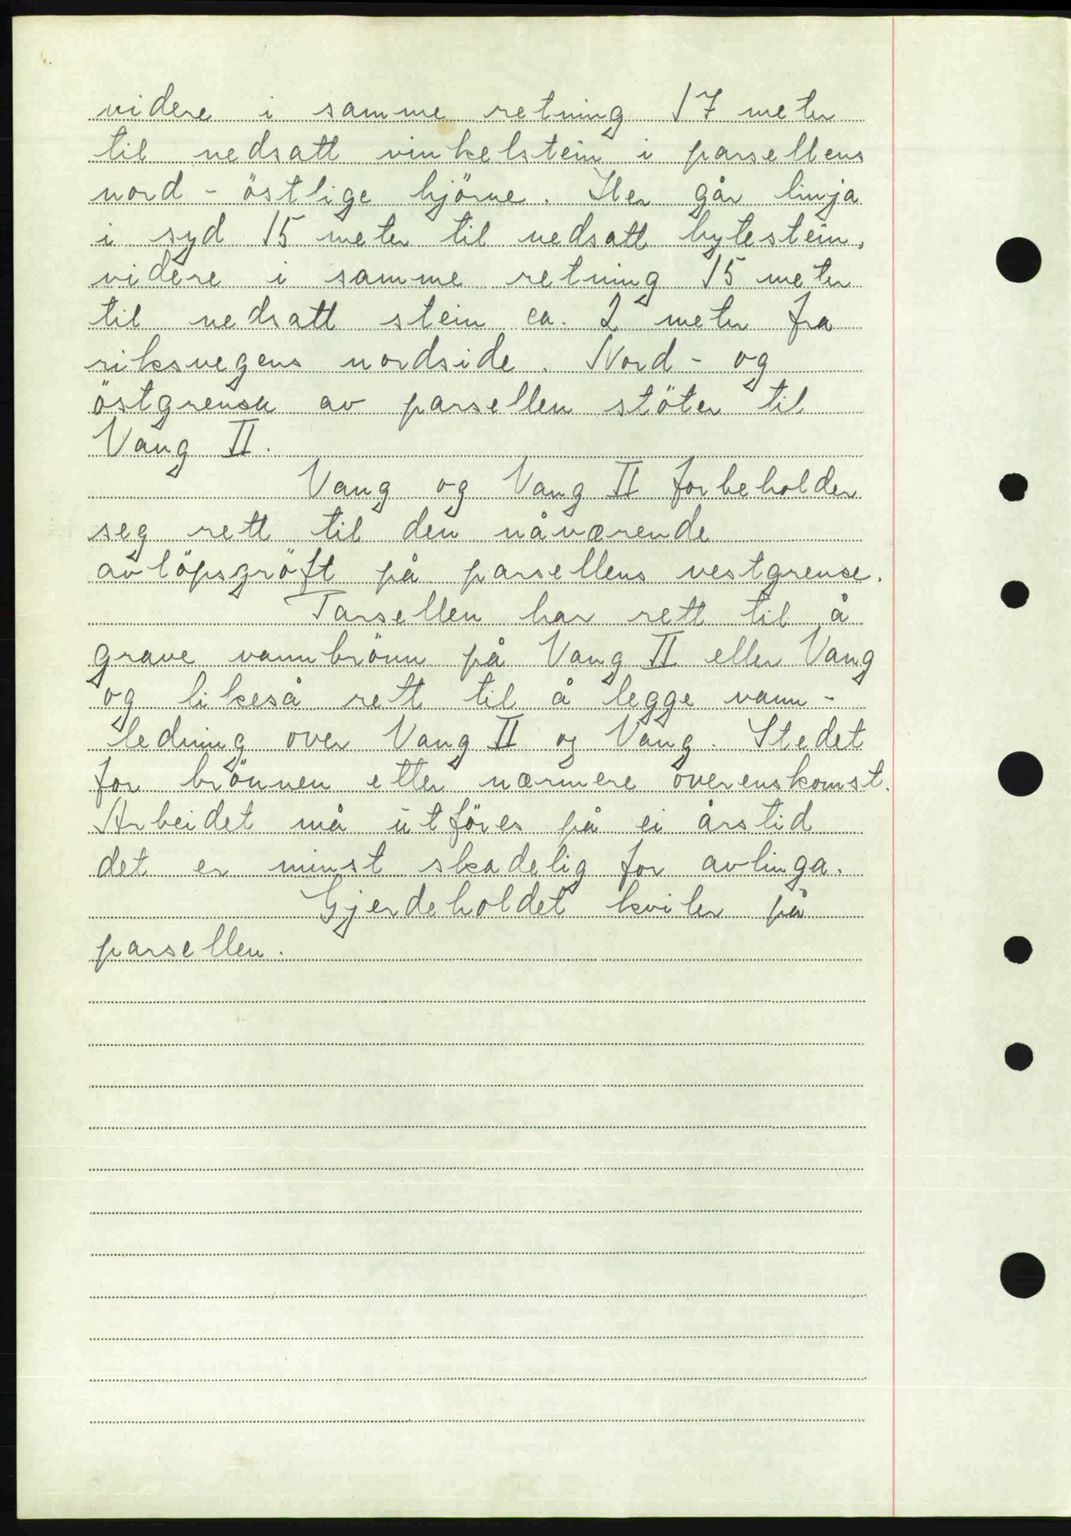 videre i samme retning 17 meter
til nedsatt vinkelstein i parsellens
nord - östlige hjörne. Her går linja
i syd 15 meter til nedsatt bytestein,
videre i samme retning 15 meter
til nedsatt stein ca. 2 meter fra
riksvegens nordside. Nord - og
östgrensa av parsellen stöter til
Vang II.
Vang og Vang II forbeholder
seg rett til den nåværende
avlöpsgröft på parsellens vestgrense.
Parsellen har rett til å
grave vannbrönn på Vang II eller Vang
og likeså rett til å legge vann-
ledning over Vang II og Vang. Stedet
for brönnen etter nærmere overenskomst.
Arbeidet må utföres på ei årstid
det er minst skadelig for avlinga.
Gjerdeholdet kviler på
parsellen.